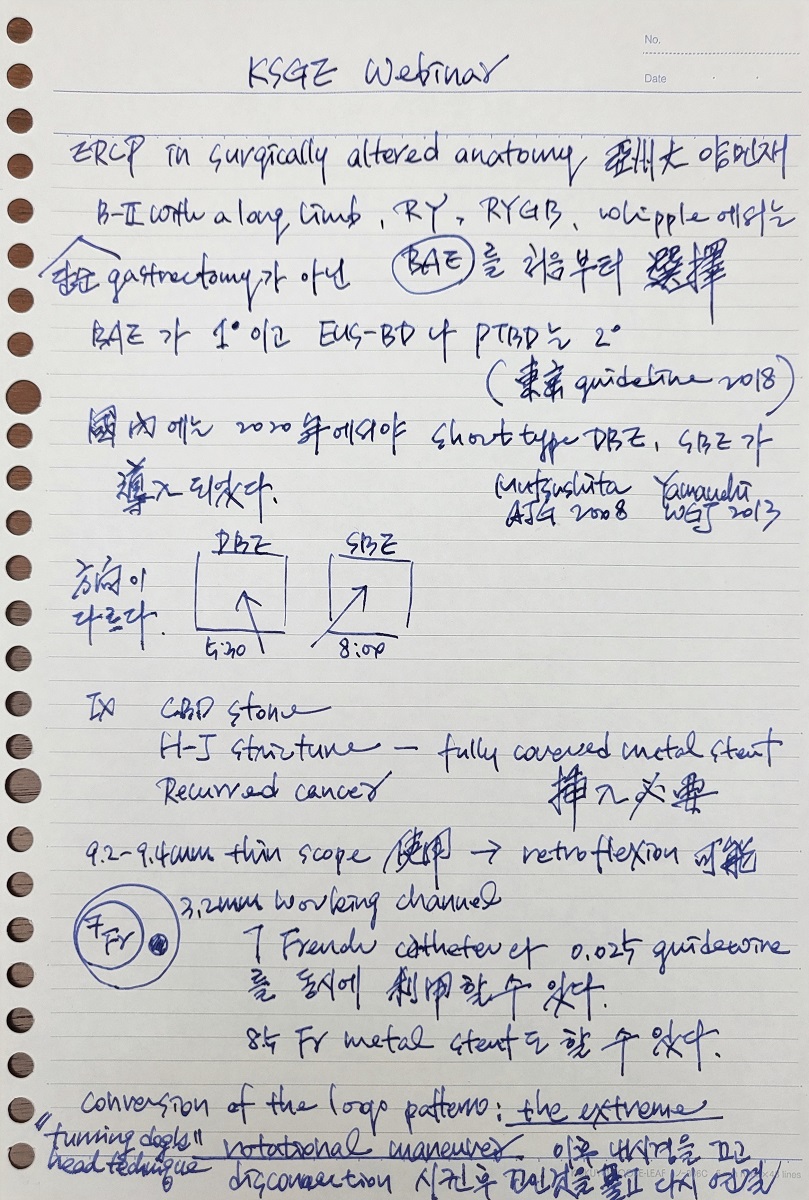 No.
Date
KSGE Webinar
ERCP in surgically altered anatomy 亞州大 양민재
B-II with a long limb, RY, RYGB, Whipple 에서는
gastrectomy가 아닌 BAE 를 처음부터 選擇
BAE 가 1° 이고 EUS-BD 나 PTBD는 2°
(東京 guideline 2018)
國內에는 2020年에서야 short type DBE, SBE가
導入 되었다.
Mutsushita Yamauchi
AJG 2008 WGJ 2013
DBE SBE
方向이
다르다.
5:30 8:00
Ix CBD stone
H-J stricture — fully covered metal stent
挿入必要
Recurred cancer
9.2-9.4mm thin scope 使用 → retroflexion 可能
3.2mm working channel
7 Fr
7 French catheter 와 0.025 guidewire
를 동시에 利用할 수 있다.
8.5 Fr metal stent도 할 수 있다.
conversion of the loop pattern: the extreme
rotational maneuver. 이후 내시경을 끄고
"turning dog's"
head technique
disconnection 시킨후 전원을 풀고 다시 연결